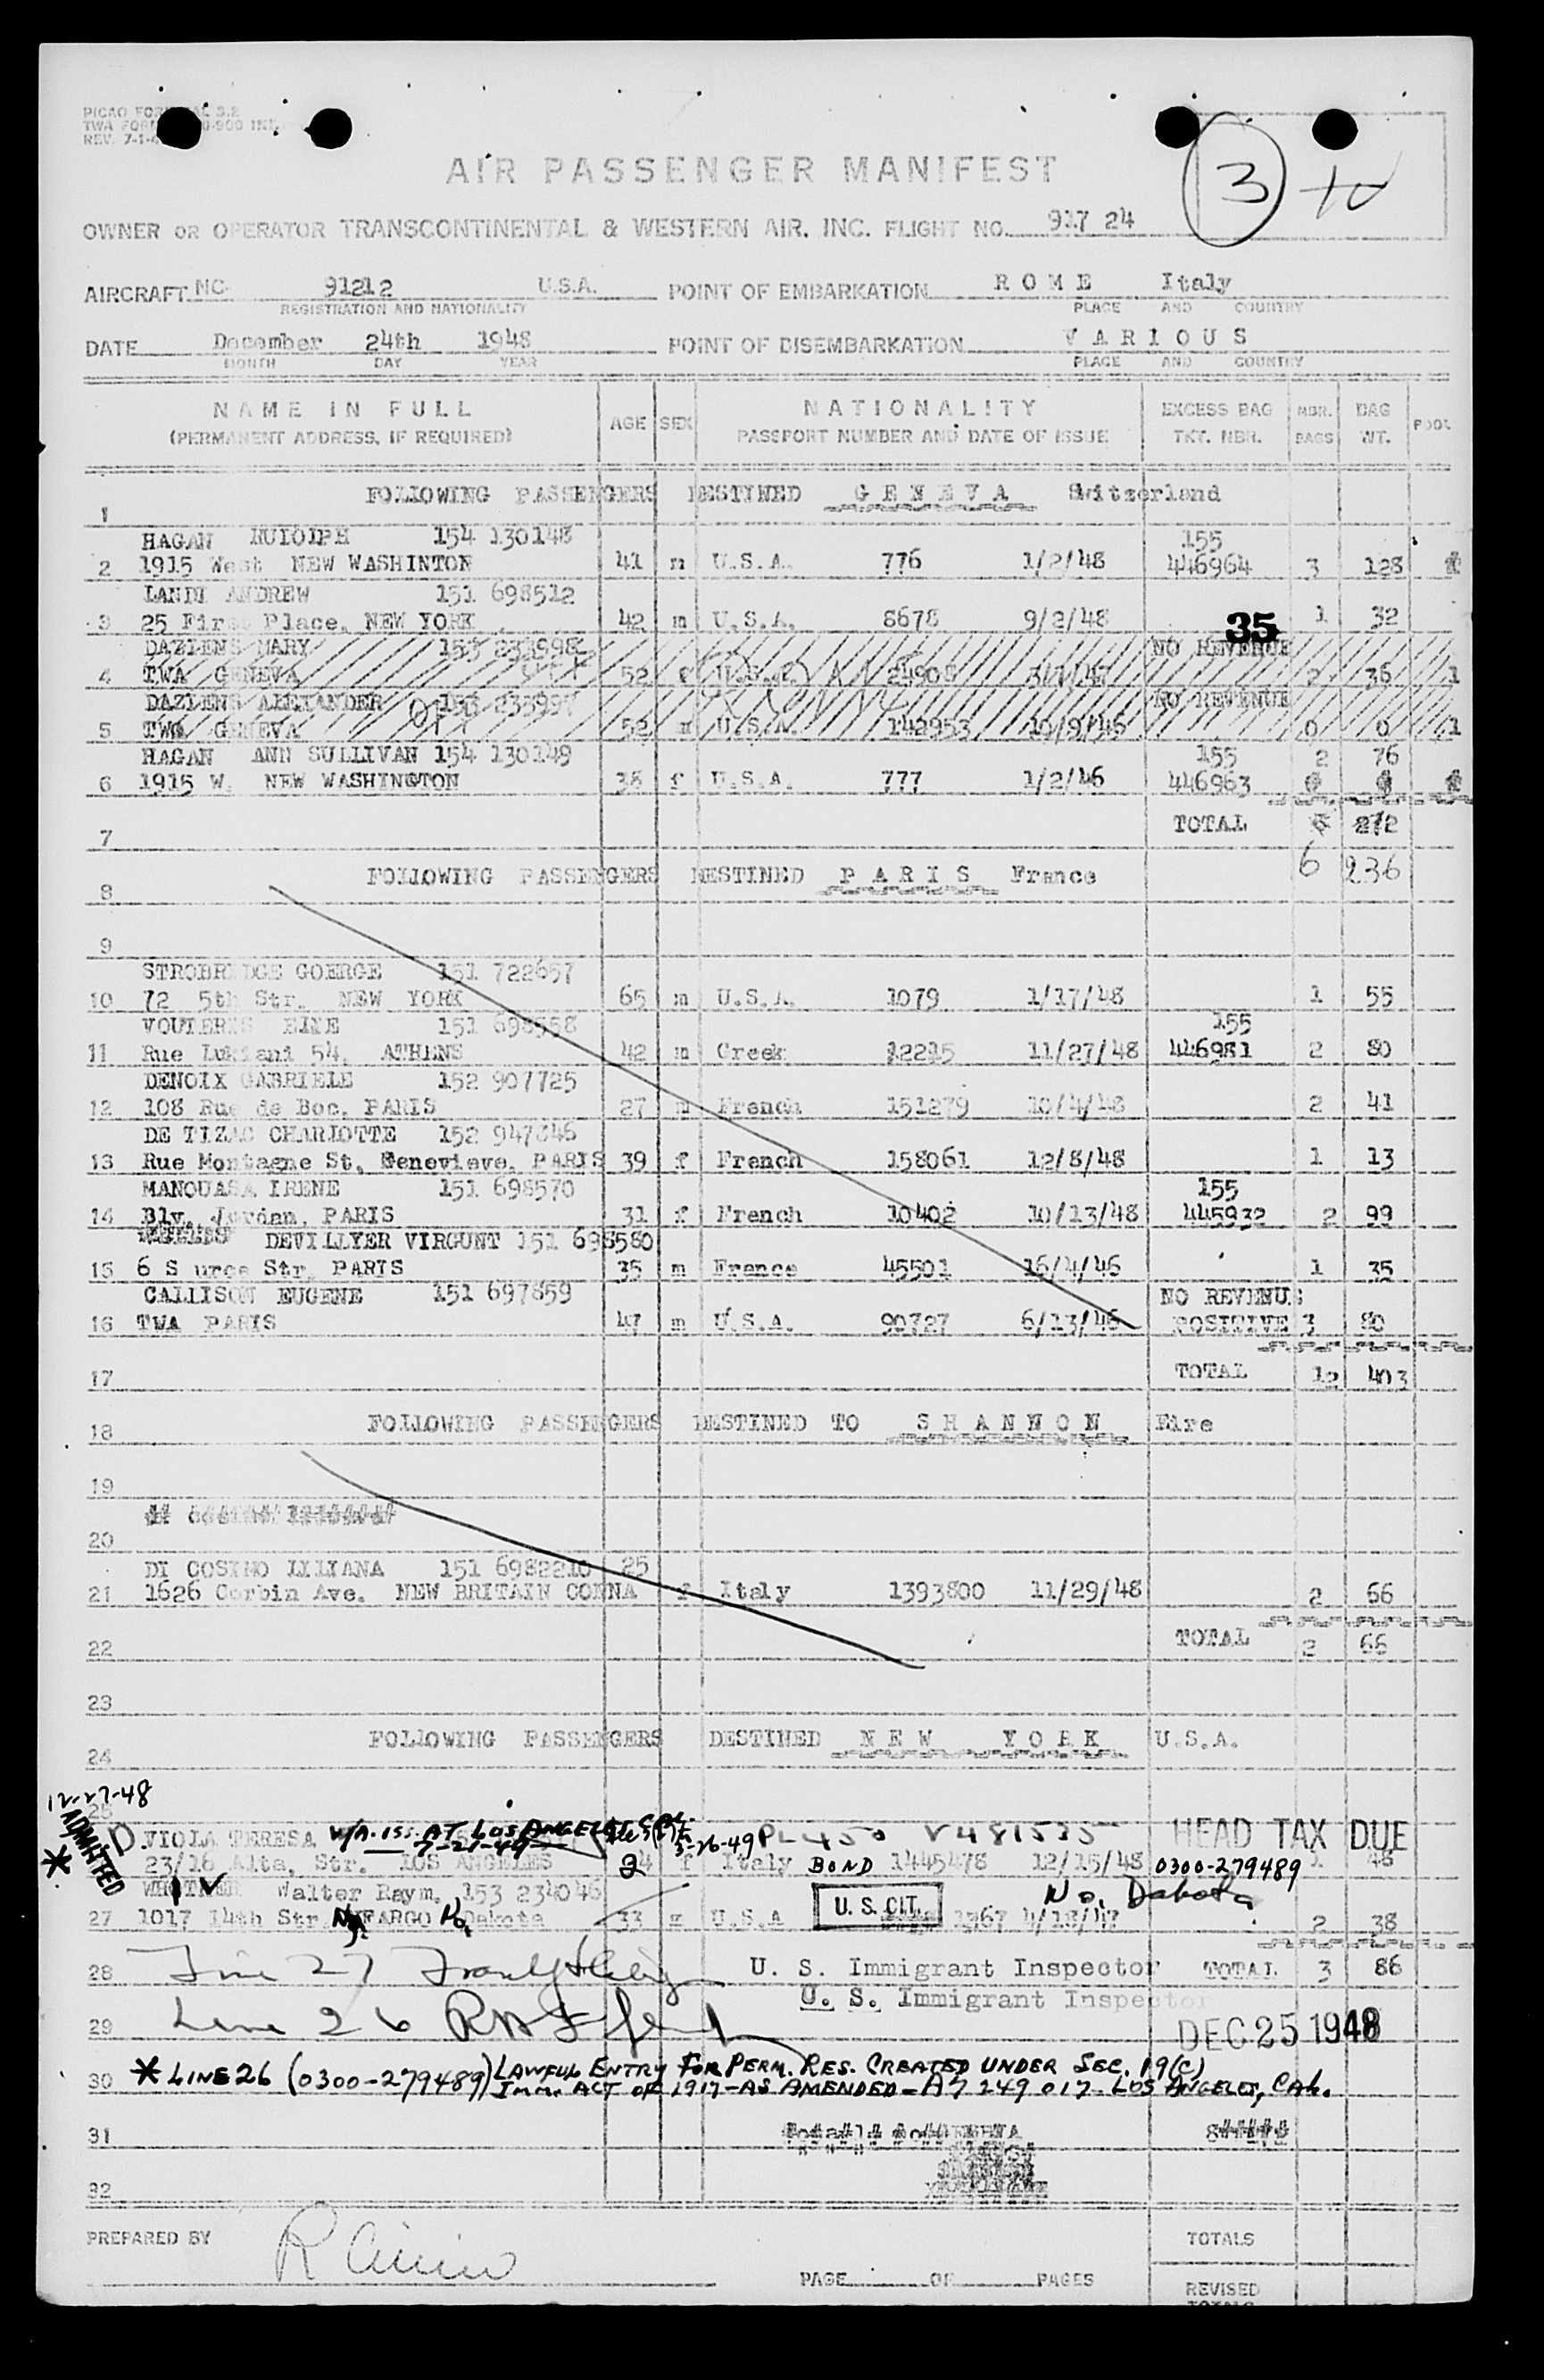 PICAO FOR
TWA FOR
REV. 7-1-4
AIR PASSENGER MANIFEST
3
OWNER OR OPERATOR TRANSCONTINENTAL & WESTERN AIR, INC. FLIGHT NO. 917 24
AIRCRAFT NC- 91212 U.S.A. POINT OF EMBARKATION R O M E Italy
REGISTRATION AND NATIONALITY PLACE AND COUNTRY
DATE December 24th 1948 POINT OF DISEMBARKATION V A R I O U S
MONTH DAY YEAR PLACE AND COUNTRY
NAME IN FULL AGE SEX NATIONALITY EXCESS BAG NBR. BAG
(PERMANENT ADDRESS, IF REQUIRED) PASSPORT NUMBER AND DATE OF ISSUE TKT. NBR. BAGS WT.
1 FOLLOWING PASSENGERS DESTINED G E N E V A Switzerland
HAGAN 154 130148 155
2 1915 West NEW WASHINTON 41 m U.S.A. 776 1/2/48 446964 3 128
LANDI ANDREW 151 698512
3 25 First Place, NEW YORK 42 m U.S.A. 8678 9/2/48 35 1 32
DAZIENS MARY 153 NO REVENUE
4 TWA GENEVA 52 f U.S.A. 2 36 1
DAZIENS ALEXANDER 153 NO REVENUE
5 TWA GENEVA 52 m U.S.A. 142953 10/9/46 0 0 1
HAGAN ANN SULLIVAN 154 130149 155 2 76
6 1915 W. NEW WASHINGTON 38 f U.S.A. 777 1/2/46 446963
7 TOTAL 272
8 FOLLOWING PASSENGERS DESTINED P A R I S France 6 236
9
STROBRIDGE GOERGE 151 722657
10 72 5th Str. NEW YORK 65 m U.S.A. 1079 1/17/48 1 55
151 698558 155
11 Rue Lukiani 54, ATHENS 42 m Greek 12215 11/27/48 446981 2 80
DENOIX GABRIELE 152 907725
12 108 Rue de Boc. PARIS 27 m French 151279 10/4/48 2 41
DE TIZAC CHARIOTTE 152 947846
13 Rue Montagne St. Genevieve, PARIS 39 f French 158061 12/8/48 1 13
MANOUASA IRENE 151 698570 155
14 Blv. Jordan, PARIS 31 f French 10402 10/13/48 445932 2 99
DEVILLYER VIRGUNT 151 698580
15 6 S urce Str. PARIS 35 m France 45501 16/4/46 1 35
CALLISON EUGENE 151 697859 NO REVENUE
16 TWA PARIS 47 m U.S.A. 90727 6/13/46 POSITIVE 3 80
17 TOTAL 12 403
18 FOLLOWING PASSENGERS DESTINED TO S H A N N O N Eire
19
20
DI COSIMO LILIANA 151 6982210 25
21 1626 Corbin Ave. NEW BRITAIN CONNA f Italy 1393800 11/29/48 2 66
22 TOTAL 2 66
23
24 FOLLOWING PASSENGERS DESTINED N E W Y O R K U.S.A.
12-27-48
25
ADMITTED
D VIOLA TERESA V/A. ISS. AT LOS ANGELES CAL. 7-21-49 3-26-49 PL 450 V481535 HEAD TAX DUE
23/16 Alta, Str. LOS ANGELES 24 f Italy BOND 1445478 12/15/48 0300-279489 1 48
Walter Raym. 153 234046 U. S. CIT. No. Dakota
27 1017 14th Str. FARGO Dakota 33 m U.S.A 1367 4/18/47 2 38
28 Line 27 U. S. Immigrant Inspector TOTAL 3 86
U. S. Immigrant Inspector
29 Line 26 DEC 25 1948
30 * LINE 26 (0300-279489) LAWFUL ENTRY FOR PERM. RES. CREATED UNDER SEC. 19(C)
IMM. ACT OF 1917-AS AMENDED-A7 249 017 LOS ANGELES, CAL.
31
32
PREPARED BY TOTALS
PAGE OF PAGES
REVISED
TOTALS